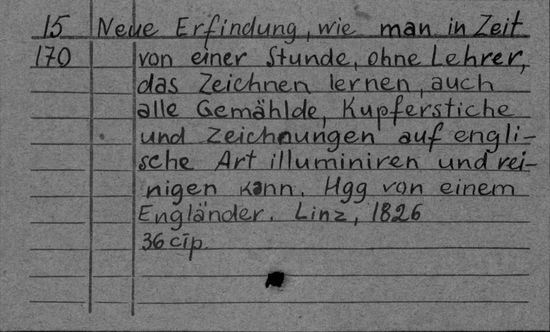 15 Neue Erfindung, wie man in Zeit
170 von einer Stunde, ohne Lehrer,
das Zeichnen lernen, auch
alle Gemählde, Kupferstiche
und Zeichnungen auf engli-
sche Art illuminiren und rei-
nigen kann. Hgg von einem
Engländer. Linz, 1826
36 cтp.